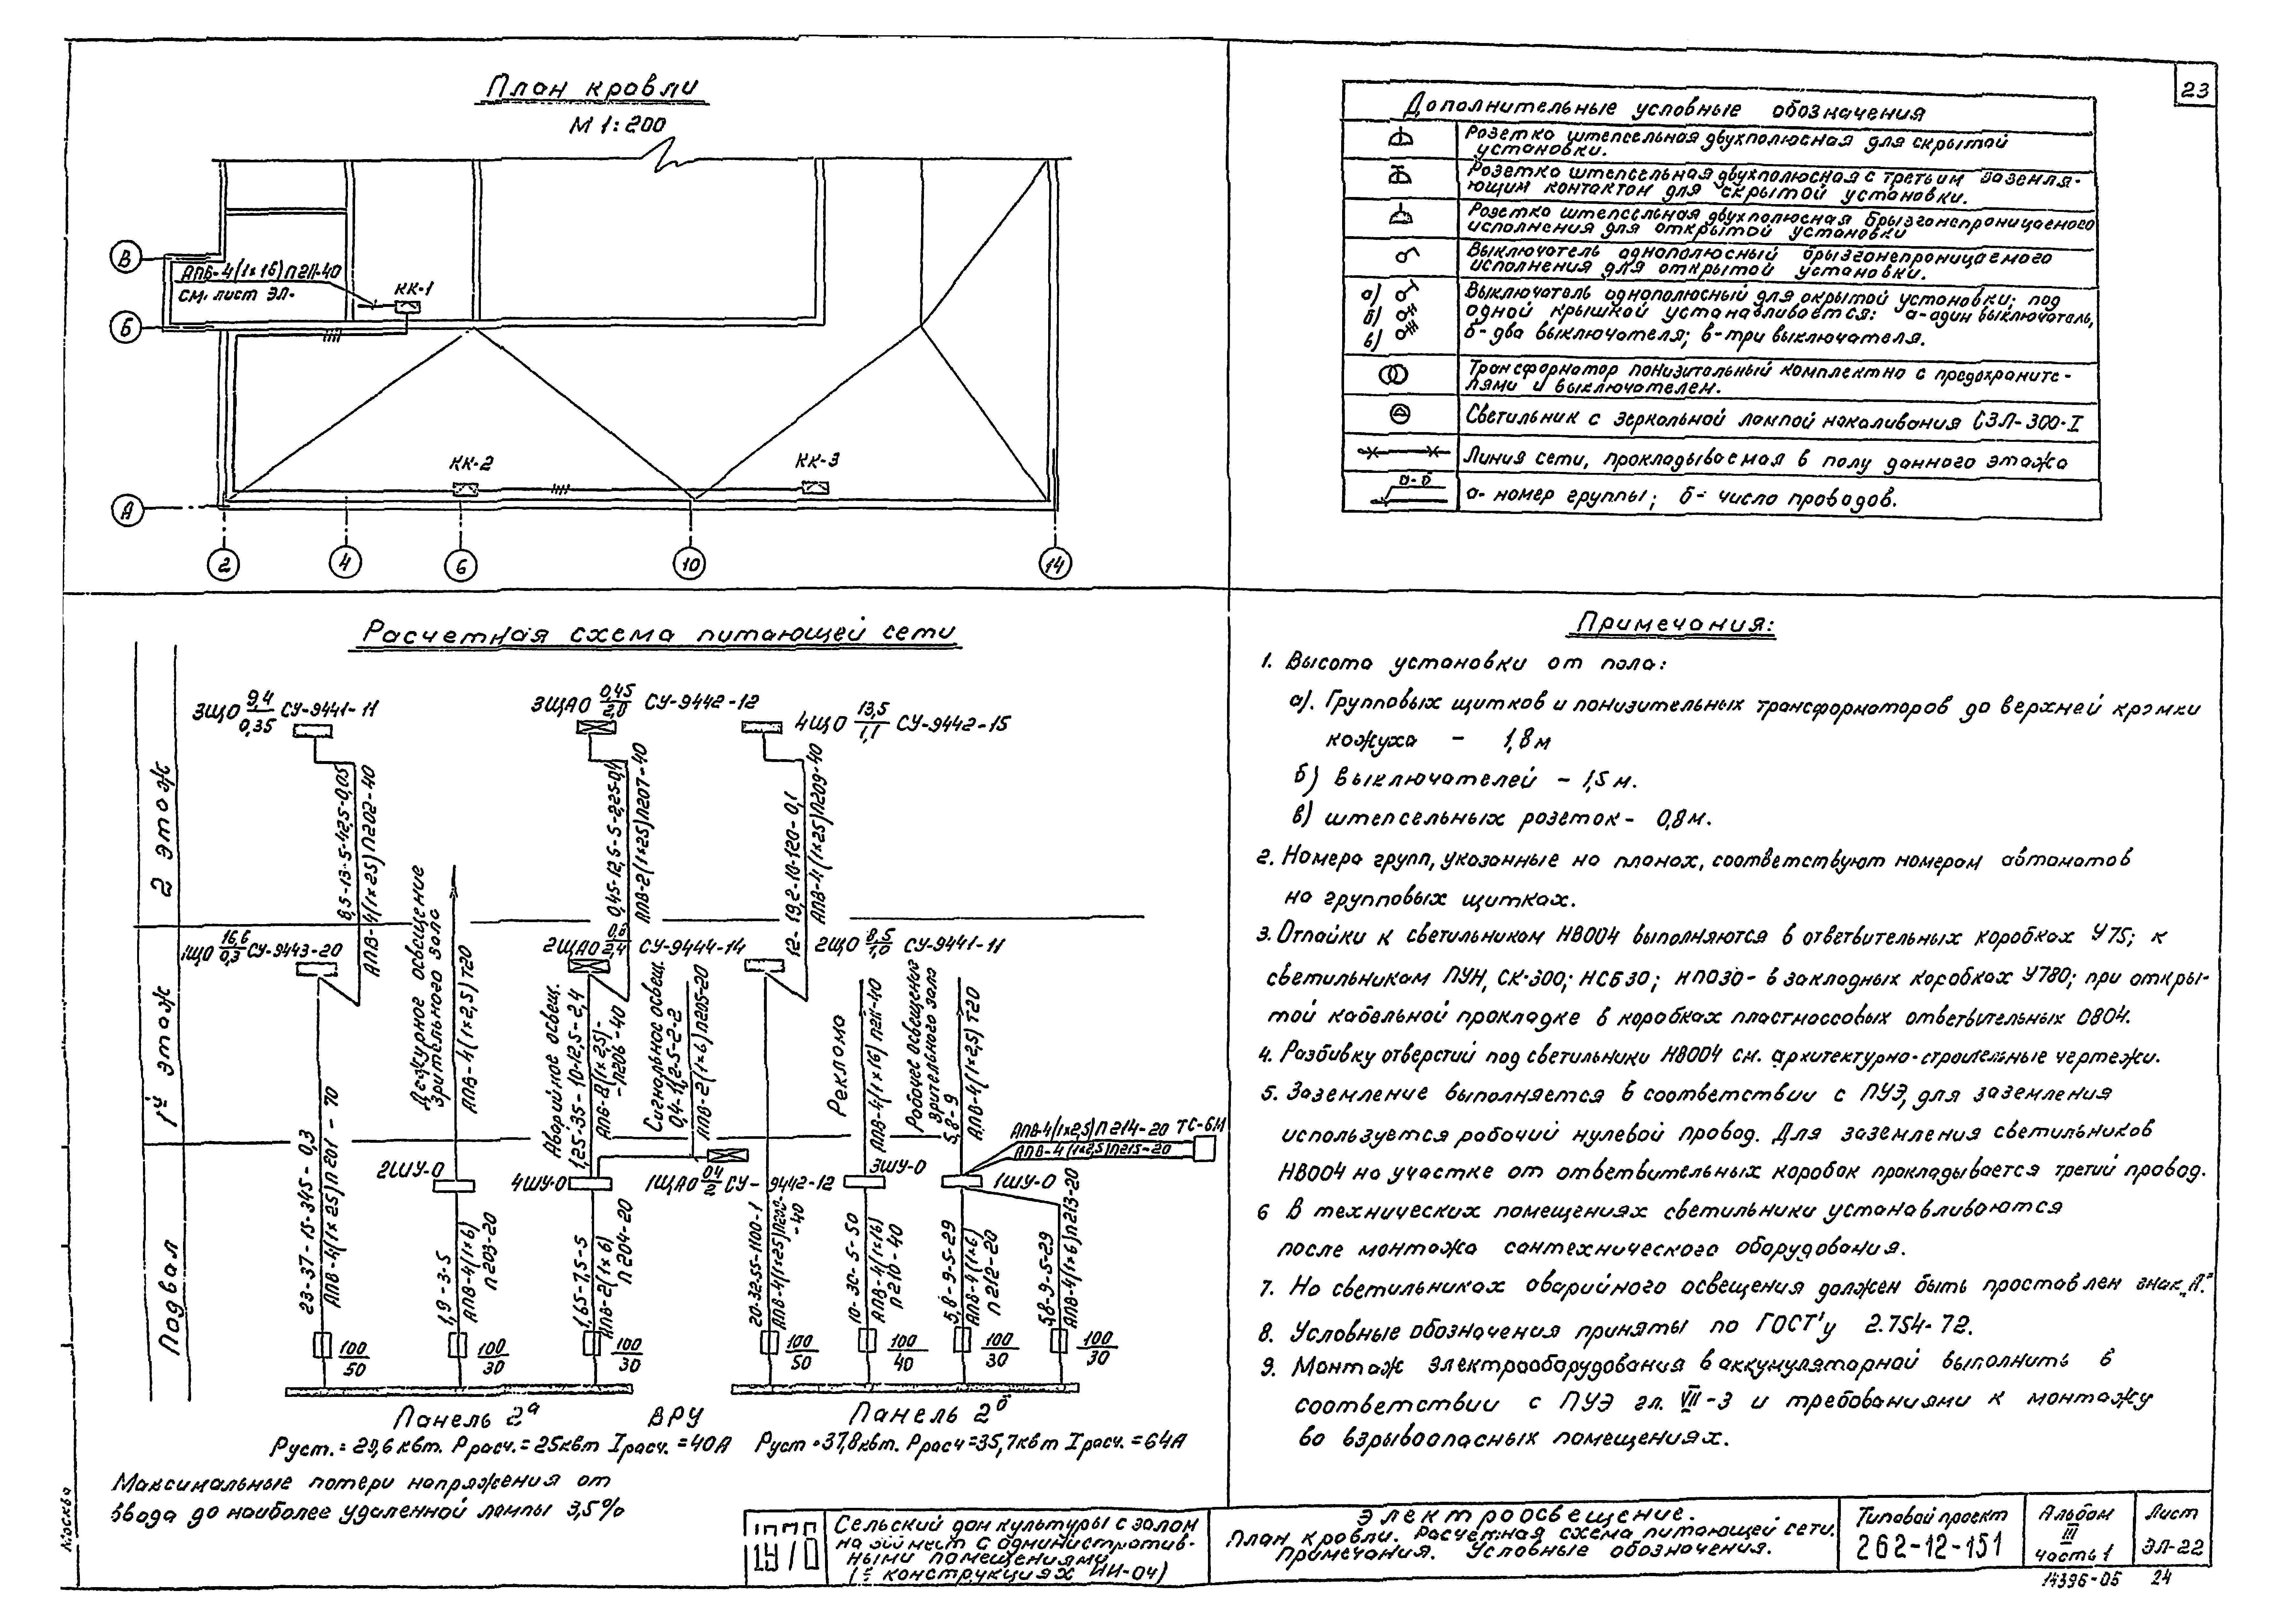 23
План кровли
М 1:200
В
Б
А
АПВ-4(1×16)П211-40
см. лист ЭЛ-
КК-1
КК-2
КК-3
2
4
6
10
14
Дополнительные условные обозначения
Розетка штепсельная двухполюсная для скрытой
установки.
Розетка штепсельная двухполюсная с третьим заземля-
ющим контактом для скрытой установки.
Розетка штепсельная двухполюсная брызгонепроницаемого
исполнения для открытой установки
Выключатель однополюсный брызгонепроницаемого
исполнения для открытой установки.
а)
б)
в)
Выключатель однополюсный для скрытой установки; под
одной крышкой устанавливается: а-один выключатель,
б-два выключателя; в-три выключателя.
Трансформатор понизительный комплектно с предохраните-
лями и выключателем.
Светильник с зеркальной лампой накаливания СЗЛ-300-1
Линия сети, прокладываемая в полу данного этажа
а-б
а- номер группы; б- число проводов.
Расчетная схема питающей сети
2 этаж
1й этаж
Подвал
3ЩО 9,4/0,35 СУ-9441-11
3ЩАО 0,45/2,0 СУ-9442-12
4ЩО 13,5/1,1 СУ-9442-15
8,5-13-5-42,5-0,05
АПВ-4(1×25)П202-40
0,45-12,5-5-2,25-0,1
АПВ-2(1×25)П207-40
12-19,2-10-120-0,1
АПВ-4(1×25)П209-40
1ЩО 16,6/0,3 СУ-9443-20
2ЩАО 0,8/2,4 СУ-9444-14
2ЩО 8,5/1,0 СУ-9441-11
Дежурное освещение
зрительного зала
АПВ-4(1×2,5)Т20
Аварийное освещ.
1,25-35-10-12,5-2,4
АПВ-8(1×2,5)-
-П206-40
Сигнальное освещ.
0,4-1,2-5-2-2
АПВ-2(1×6)П205-20
Реклама
АПВ-4(1×16)П211-40
Рабочее освещение
зрительного зала
5,8-9
АПВ-4(1×2,5)Т20
АПВ-4(1×2,5)П214-20 ТС-6М
АПВ-4(1×2,5)П215-20
23-37-15-345-0,3
АПВ-4(1×25)П201-70
2ШУ-0
4ШУ-0
1ЩАО 0,4/2 СУ-9442-12
3ШУ-0
1ШУ-0
1,9-3-5
АПВ-4(1×6)
П203-20
1,65-7,5-5
АПВ-2(1×6)
П204-20
20-32-55-1100-1
АПВ-4(1×25)П208-
-40
10-30-5-50
АПВ-4(1×16)
П210-40
5,8-9-5-29
АПВ-4(1×6)
П212-20
5,8-9-5-29
АПВ-4(1×6)П213-20
100/50
100/30
100/30
100/50
100/40
100/30
100/30
Панель 2а ВРУ Панель 2б
Руст.=29,6квт. Ррасч.=25квт Iрасч.=40А Руст=37,8квт. Ррасч=35,7квт Iрасч.=64А
Максимальные потери напряжения от
ввода до наиболее удаленной лампы 3,5%
Примечания:
1. Высота установки от пола:
а). Групповых щитков и понизительных трансформаторов до верхней кромки
кожуха - 1,8м
б) выключателей - 1,5м.
в) штепсельных розеток- 0,8м.
2. Номера групп, указанные на планах, соответствуют номерам автоматов
на групповых щитках.
3. Отпайки к светильникам НВ004 выполняются в ответвительных коробках У75; к
светильникам ПУН, СК-300; НСБ30; НП030- в закладных коробках У780; при откры-
той кабельной прокладке в коробках пластмассовых ответвительных 0804.
4. Разбивку отверстий под светильники НВ004 см. архитектурно-строительные чертежи.
5. Заземление выполняется в соответствии с ПУЭ, для заземления
используется рабочий нулевой провод. Для заземления светильников
НВ004 на участке от ответвительных коробок прокладывается третий провод.
6 В технических помещениях светильники устанавливаются
после монтажа сантехнического оборудования.
7. На светильниках аварийного освещения должен быть проставлен знак „А".
8. Условные обозначения приняты по ГОСТ'у 2.754-72.
9. Монтаж электрооборудования в аккумуляторной выполнить в
соответствии с ПУЭ гл. VII-3 и требованиями к монтажу
во взрывоопасных помещениях.
Москва
Сельский дом культуры с залом
на мест с административ-
ными помещениями
конструкциях ИИ-04)
Электроосвещение.
План кровли. Расчетная схема питающей сети.
Примечания. Условные обозначения.
Типовой проект
262-12-151
Альбом
III
часть 1
Лист
ЭЛ-22
14396-05 24